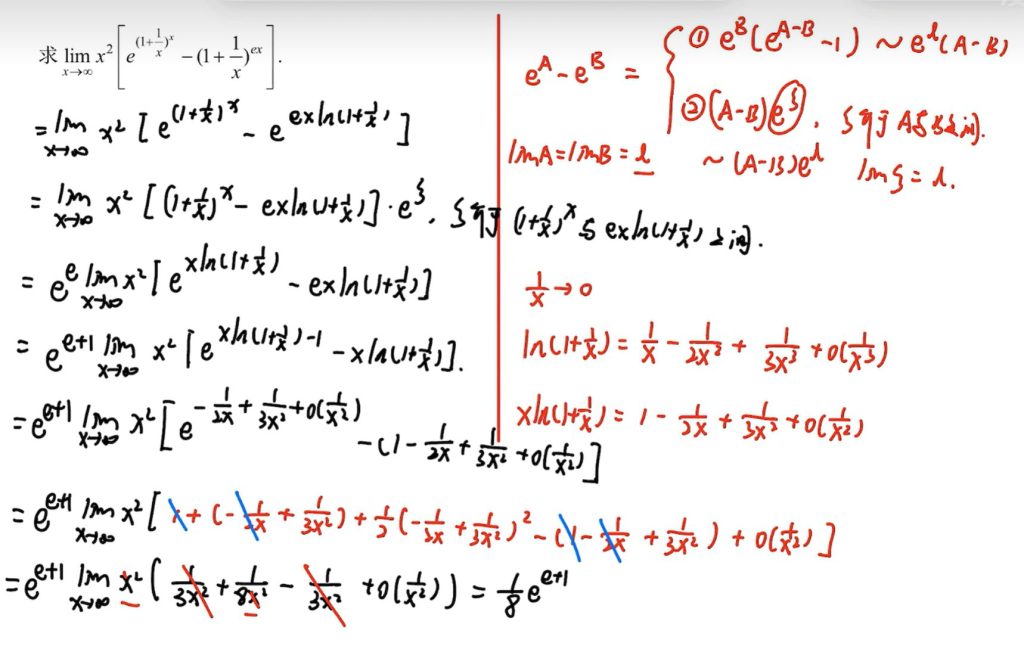 求 lim_{x→∞} x² [ e^{(1+1/x)^x} − (1+1/x)^{ex} ].
= lim_{x→∞} x² [ e^{(1+1/x)^x} − e^{exln(1+1/x)} ]
= lim_{x→∞} x² [ (1+1/x)^x − exln(1+1/x) ]·e^ξ, ξ介于 (1+1/x)^x 与 exln(1+1/x) 之间.
= e^e lim_{x→∞} x² [ e^{xln(1+1/x)} − exln(1+1/x) ]
= e^{e+1} lim_{x→∞} x² [ e^{xln(1+1/x)−1} − xln(1+1/x) ].
= e^{e+1} lim_{x→∞} x² [ e^{−1/2x + 1/3x² + o(1/x²)} − (1 − 1/2x + 1/3x² + o(1/x²) ]
= e^{e+1} lim_{x→∞} x² [ 1 + (−1/2x + 1/3x²) + 1/2(−1/2x + 1/3x²)² − (1 − 1/2x + 1/3x²) + o(1/x²) ]
= e^{e+1} lim_{x→∞} x² ( 1/3x² + 1/8x² − 1/3x² + o(1/x²) ) = 1/8 e^{e+1}
e^A − e^B = { ① e^B(e^{A−B} −1) ~ e^l(A−B)
② (A−B)e^ξ, ξ介于A与B之间.
limA = limB = l ~ (A−B)e^l limξ = l.
1/x → 0
ln(1+1/x) = 1/x − 1/2x² + 1/3x³ + o(1/x³)
xln(1+1/x) = 1 − 1/2x + 1/3x² + o(1/x²)